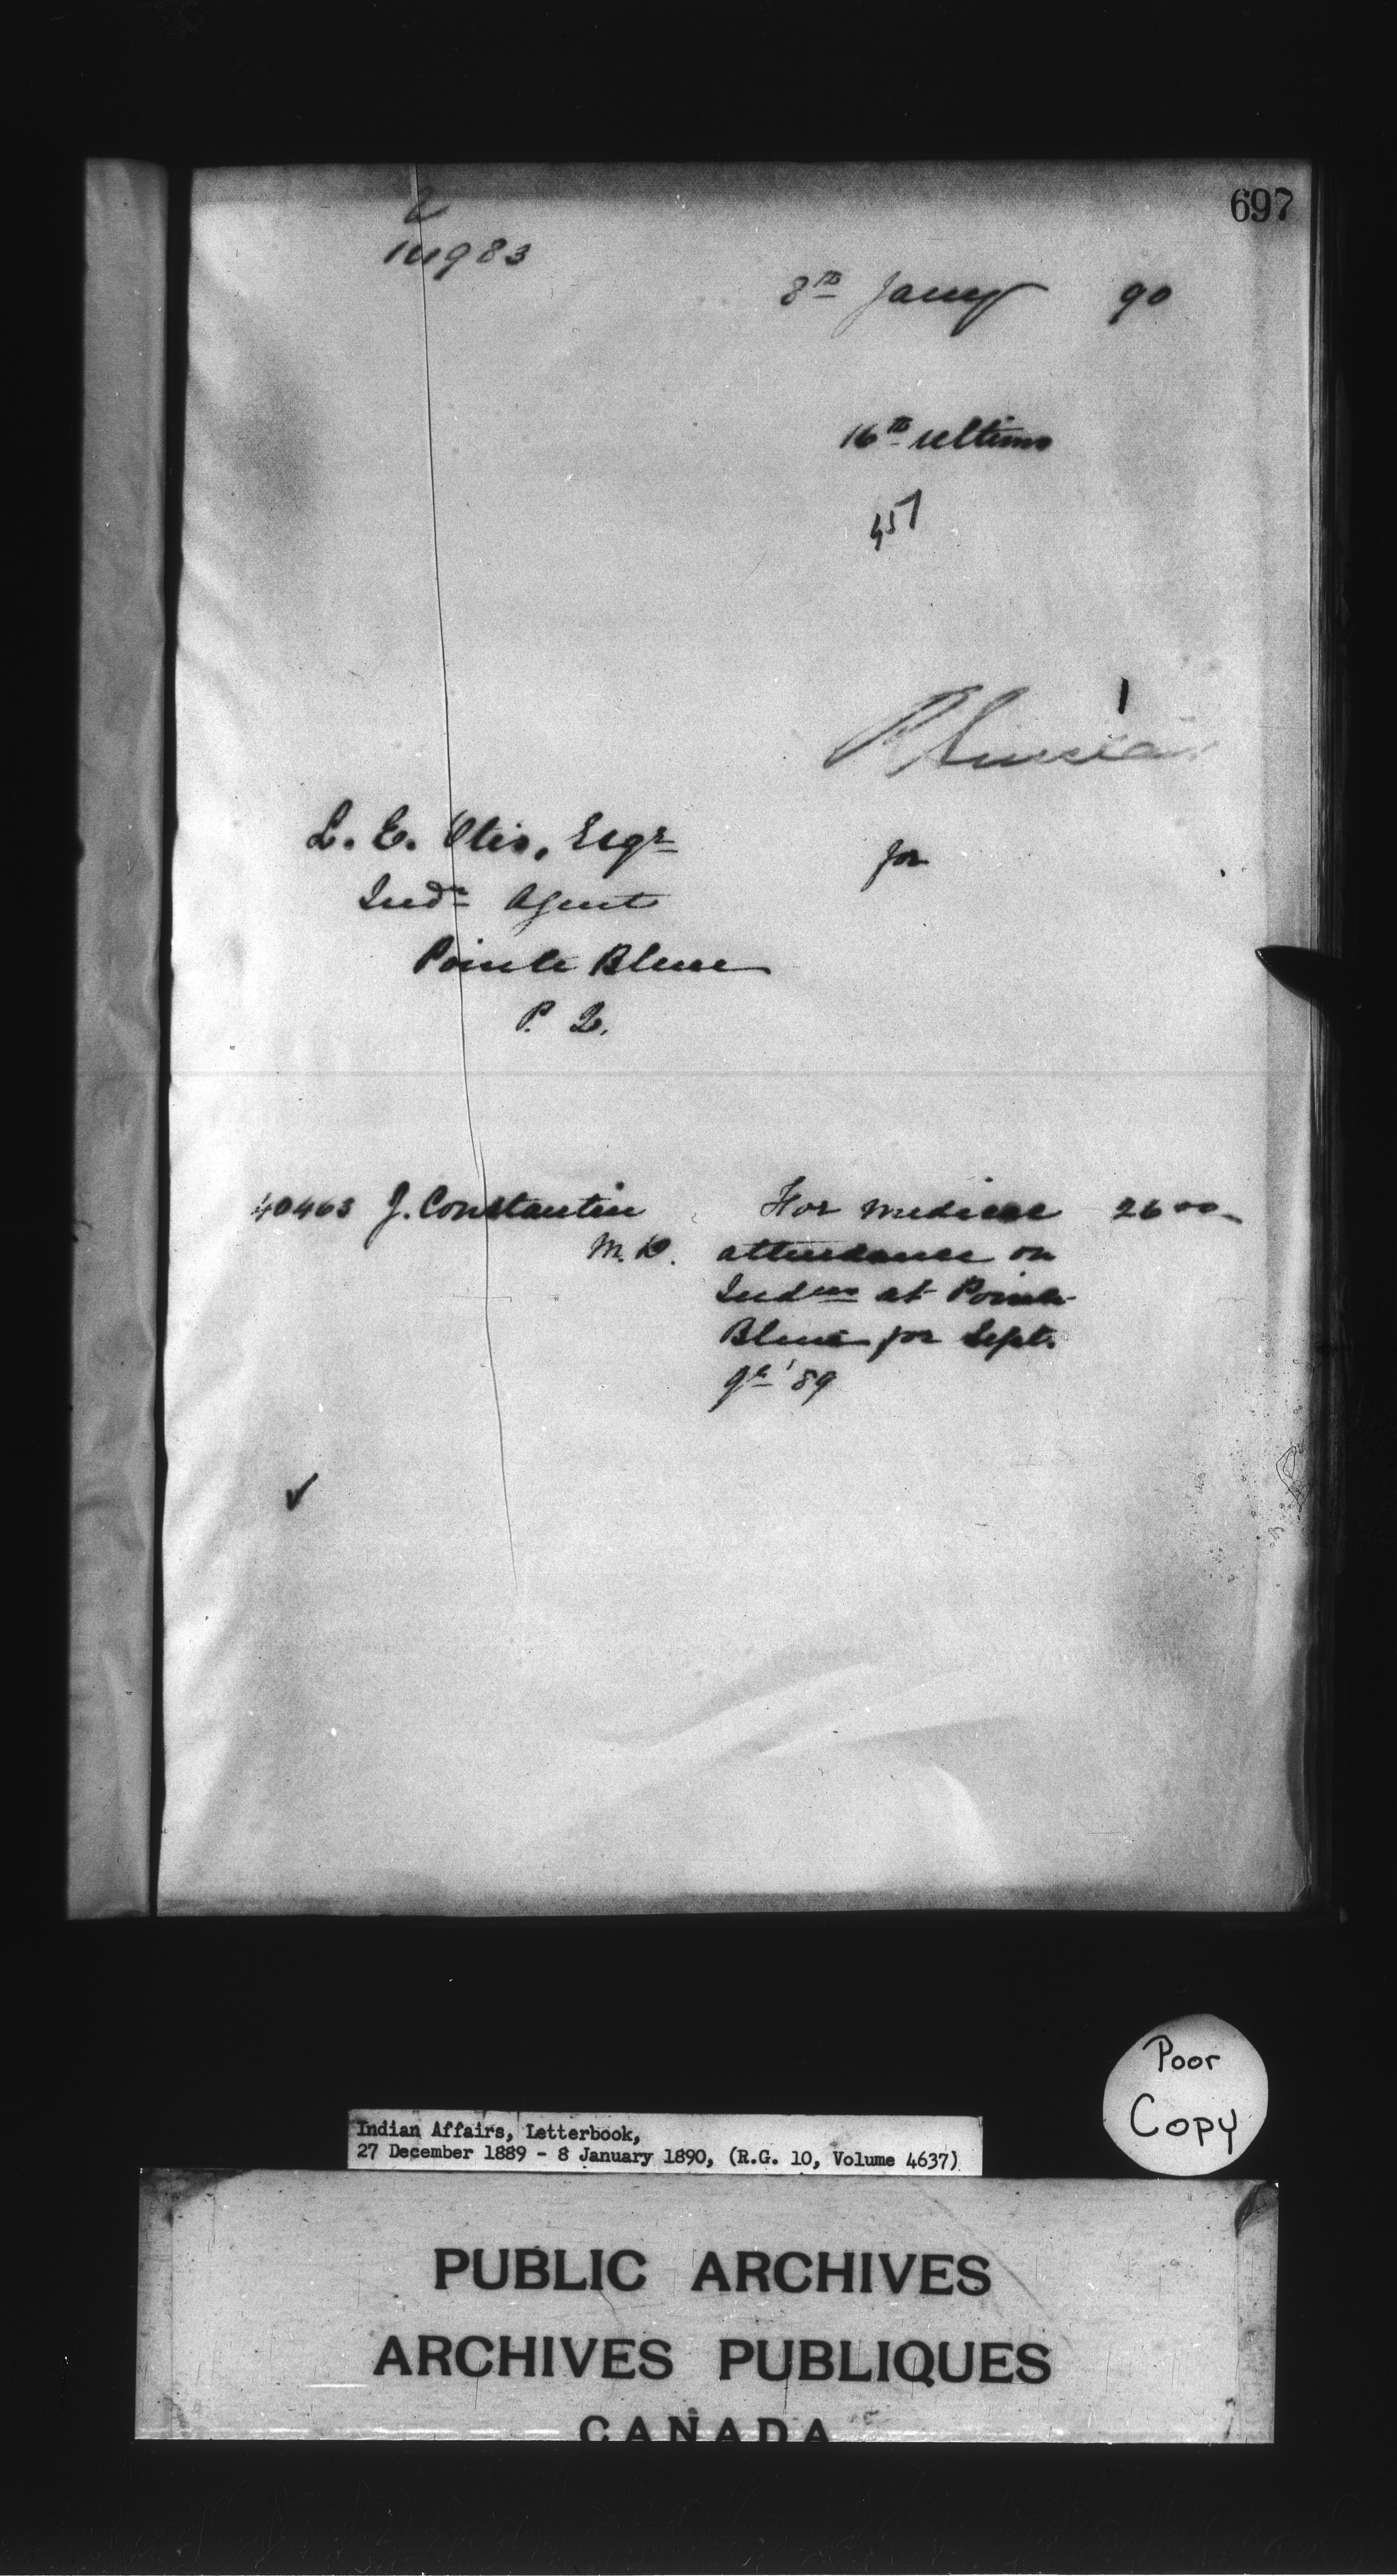 697
8th Jany 90
16th ultimo
457
R Sinclair
L. E. Otis, Esqr
for
Indn Agent
Pointe Bleue
P. Q.
40463 J. Constantin For medical 26 00
M.D. attendance on
Indns at Pointe
Bleue for Sept.
qr '89
Poor
Copy
Indian Affairs, Letterbook,
27 December 1889 - 8 January 1890, (R.G. 10, Volume 4637)
PUBLIC ARCHIVES
ARCHIVES PUBLIQUES
CANADA